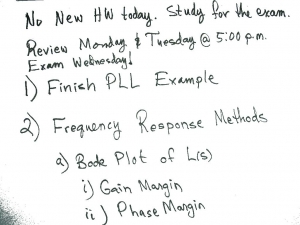 No New HW today. Study for the exam.
Review Monday & Tuesday @ 5:00 p.m.
Exam Wednesday!
1) Finish PLL Example
2) Frequency Response Methods
a) Bode Plot of L(s)
i) Gain Margin
ii) Phase Margin